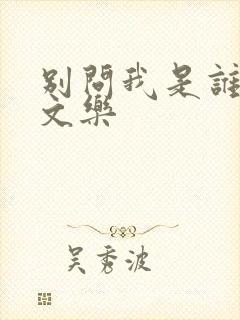 別問我是誰
文樂
吳秀波